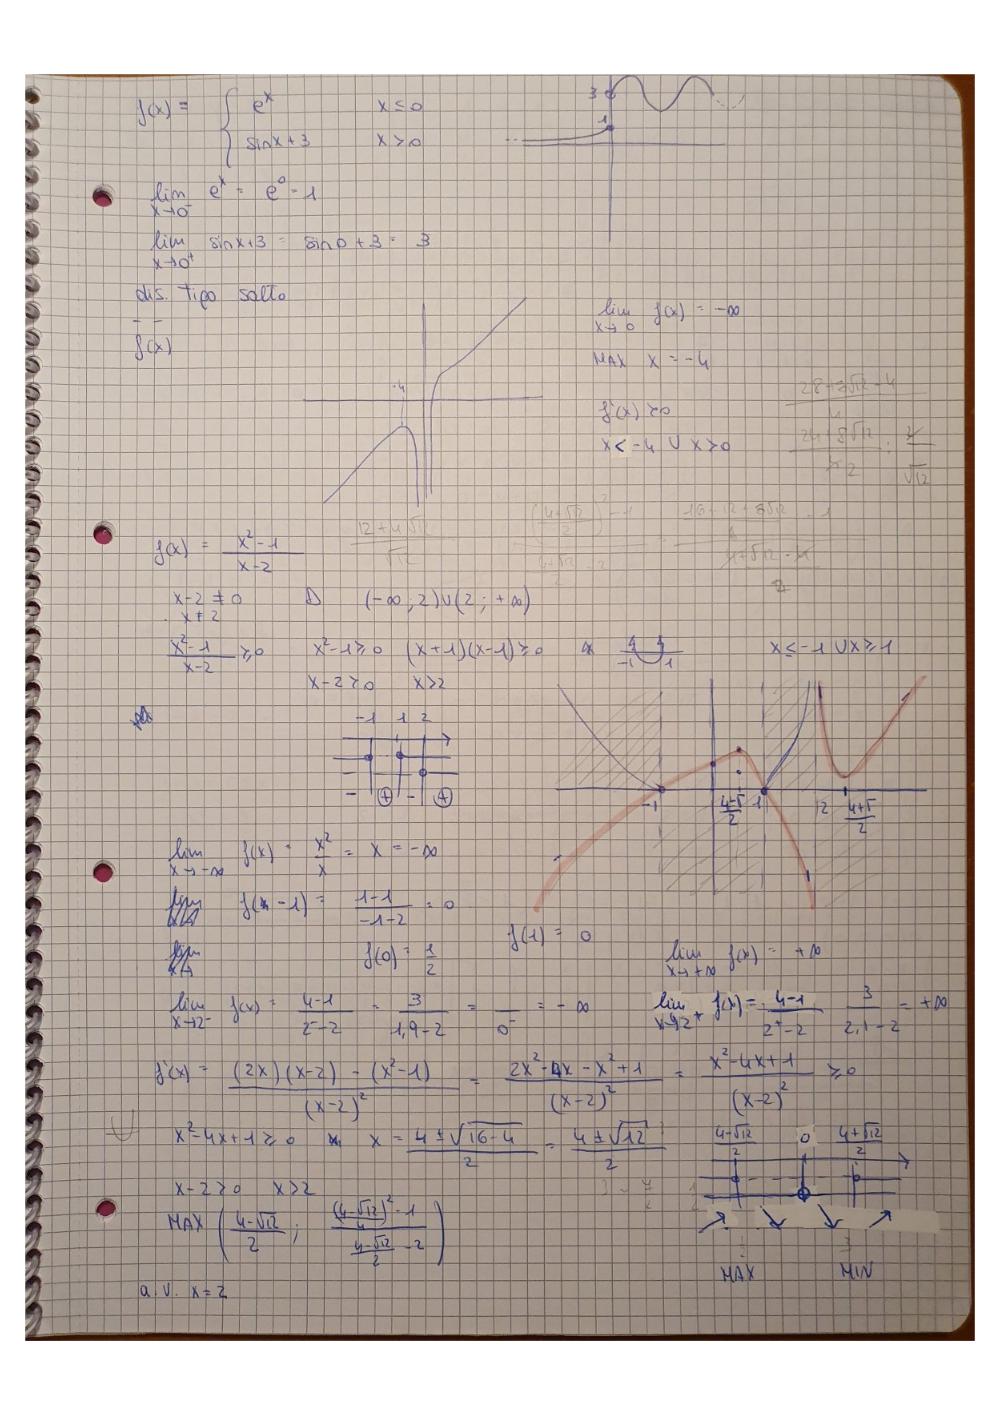 f(x) = { e^x x ≤ 0
sinx+3 x > 0
3
1
lim x→0⁻ e^x = e^0 = 1
lim x→0⁺ sinx+3 = sin0+3 = 3
dis. tipo salto
f(x)
-4
lim x→0 f(x) = -∞
MAX x = -4
f'(x) ≥0
x< -4 ∪ x>0
f(x) = (x²-1)/(x-2)
x-2 ≠ 0 D (-∞; 2)∪(2; +∞)
x ≠ 2
(x²-1)/(x-2) ≥0 x²-1≥0 (x+1)(x-1)≥0 -1 1 x≤-1 ∪ x≥1
x-2>0 x>2
-1 1 2
- + - +
-1 (4-√)/2 1 2 (4+√)/2
lim x→-∞ f(x) = x²/x = x = -∞
f(-1) = (1-1)/(-1-2) = 0
f(1) = 0
f(0) = 1/2
lim x→+∞ f(x) = +∞
lim x→2⁻ f(x) = (4-1)/(2⁻-2) = 3/(1,9-2) = /0⁻ = -∞
lim x→2⁺ f(x) = (4-1)/(2⁺-2) 3/(2,1-2) = +∞
f'(x) = ((2x)(x-2) - (x²-1))/(x-2)² = (2x²-4x-x²+1)/(x-2)² = (x²-4x+1)/(x-2)² ≥0
x²-4x+1≥0 x = (4±√(16-4))/2 = (4±√12)/2
(4-√12)/2 0 (4+√12)/2
x-2>0 x>2
MAX ((4-√12)/2; (((4-√12)²/4)-1)/((4-√12)/2-2))
MAX MIN
a.v. x=2